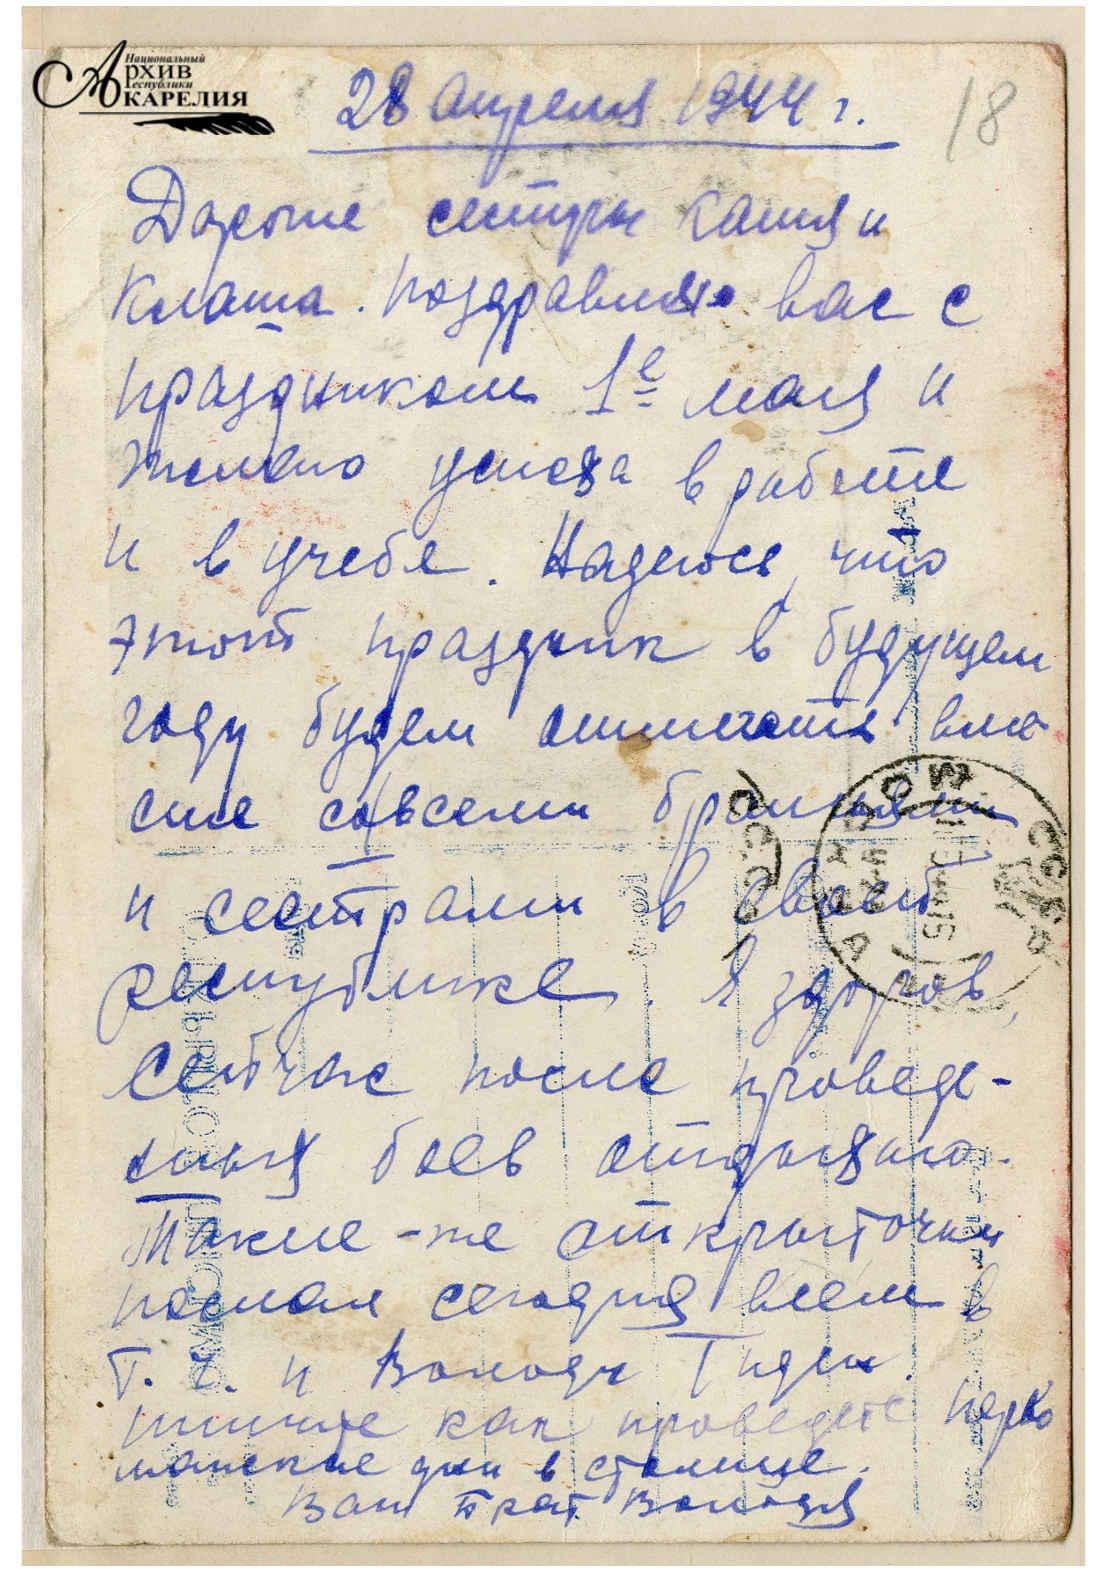 Национальный
Архив
Республики
Карелия
28 апреля 1944 г.
18
Дорогие сестры Катя и
Клаша. Поздравляю вас с
праздником 1е мая и
желаю успеха в работе
и в учебе. Надеюсь, что
этот праздник в будущем
году будем отмечать вме-
сте со всеми братьями
и сестрами в своей
республике. Я здоров,
сейчас после проведе-
нных боев отдыхаю.
Такие-же открыточки
послал сегодня всем в
Т. Ч. и Володе
пишите как проведете перво
майские дни в столице.
Ваш брат Володя
СССР